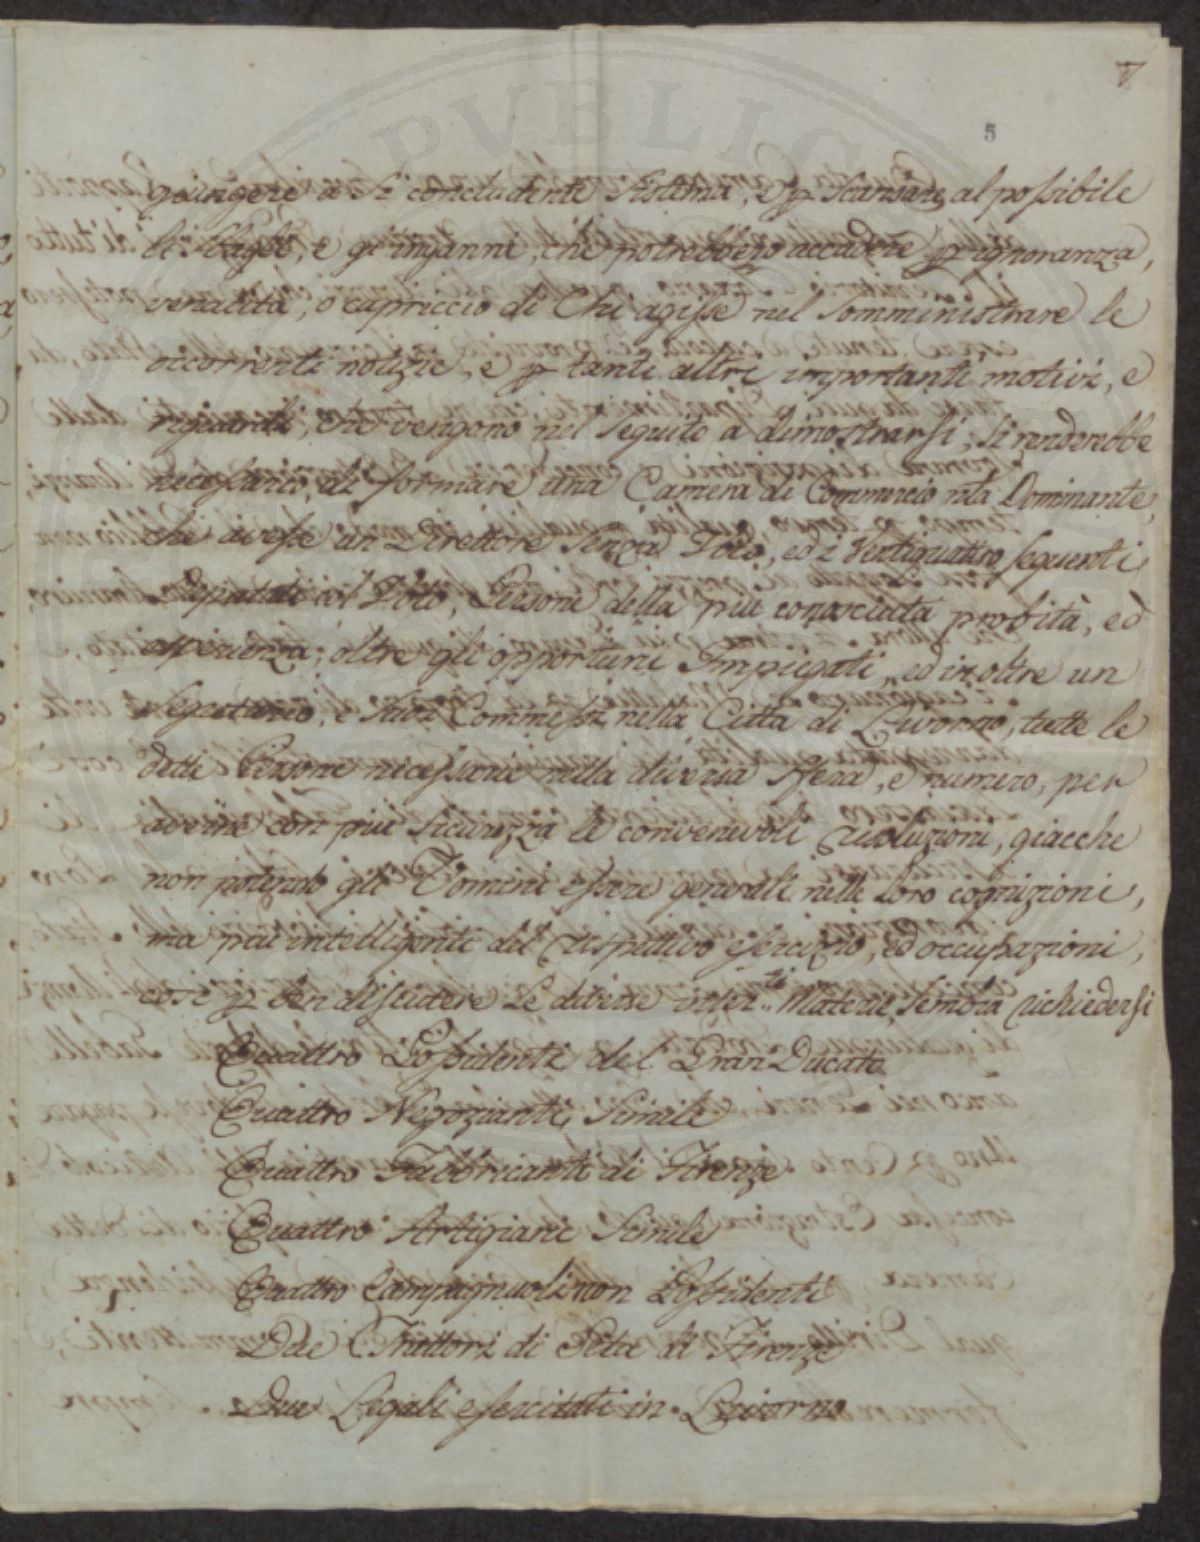 5
giungere a sì concludente Sistema, e p scansare al possibile
li sbagli, e gl'inganni, che potrebbero accadere p ignoranza,
venalità, o capriccio di Chi agisse nel somministrare le
occorrenti notizie, e p tanti altri importanti motivi, e
riguardi, che vengono nel seguito a dimostrarsi; Si renderebbe
necessario di formare una Camera di Commercio nla Dominante,
che avesse un Direttore senza Voto, ed i Ventiquattro seguenti
Deputati col Voto, Persone della più conosciuta probità, ed
esperienza, oltre gli opportuni Impiegati, ed inoltre un
Segretario, e suoi Commessi nella Città di Livorno, tutte le
dette Persone necessarie nella diversa sfera, e numero, per
averne con più sicurezza le convenevoli risoluzioni, giacche
non potendo gli Uomini essere generali nelle Loro cognizioni,
ma più intelligenti del rispettivo esercizio, ed occupazioni,
così p ben discutere le diverse inser.ti Materie, sembra richiedersi
Quattro Possidenti del Gran Ducato
Quattro Negozianti Simile
Quattro Fabbricanti di Firenze
Quattro Artigiani Simile
Quattro Campagnuoli non Possidenti
Due Trattori di Seta di Firenze
Due Legali esercitati in Livorno